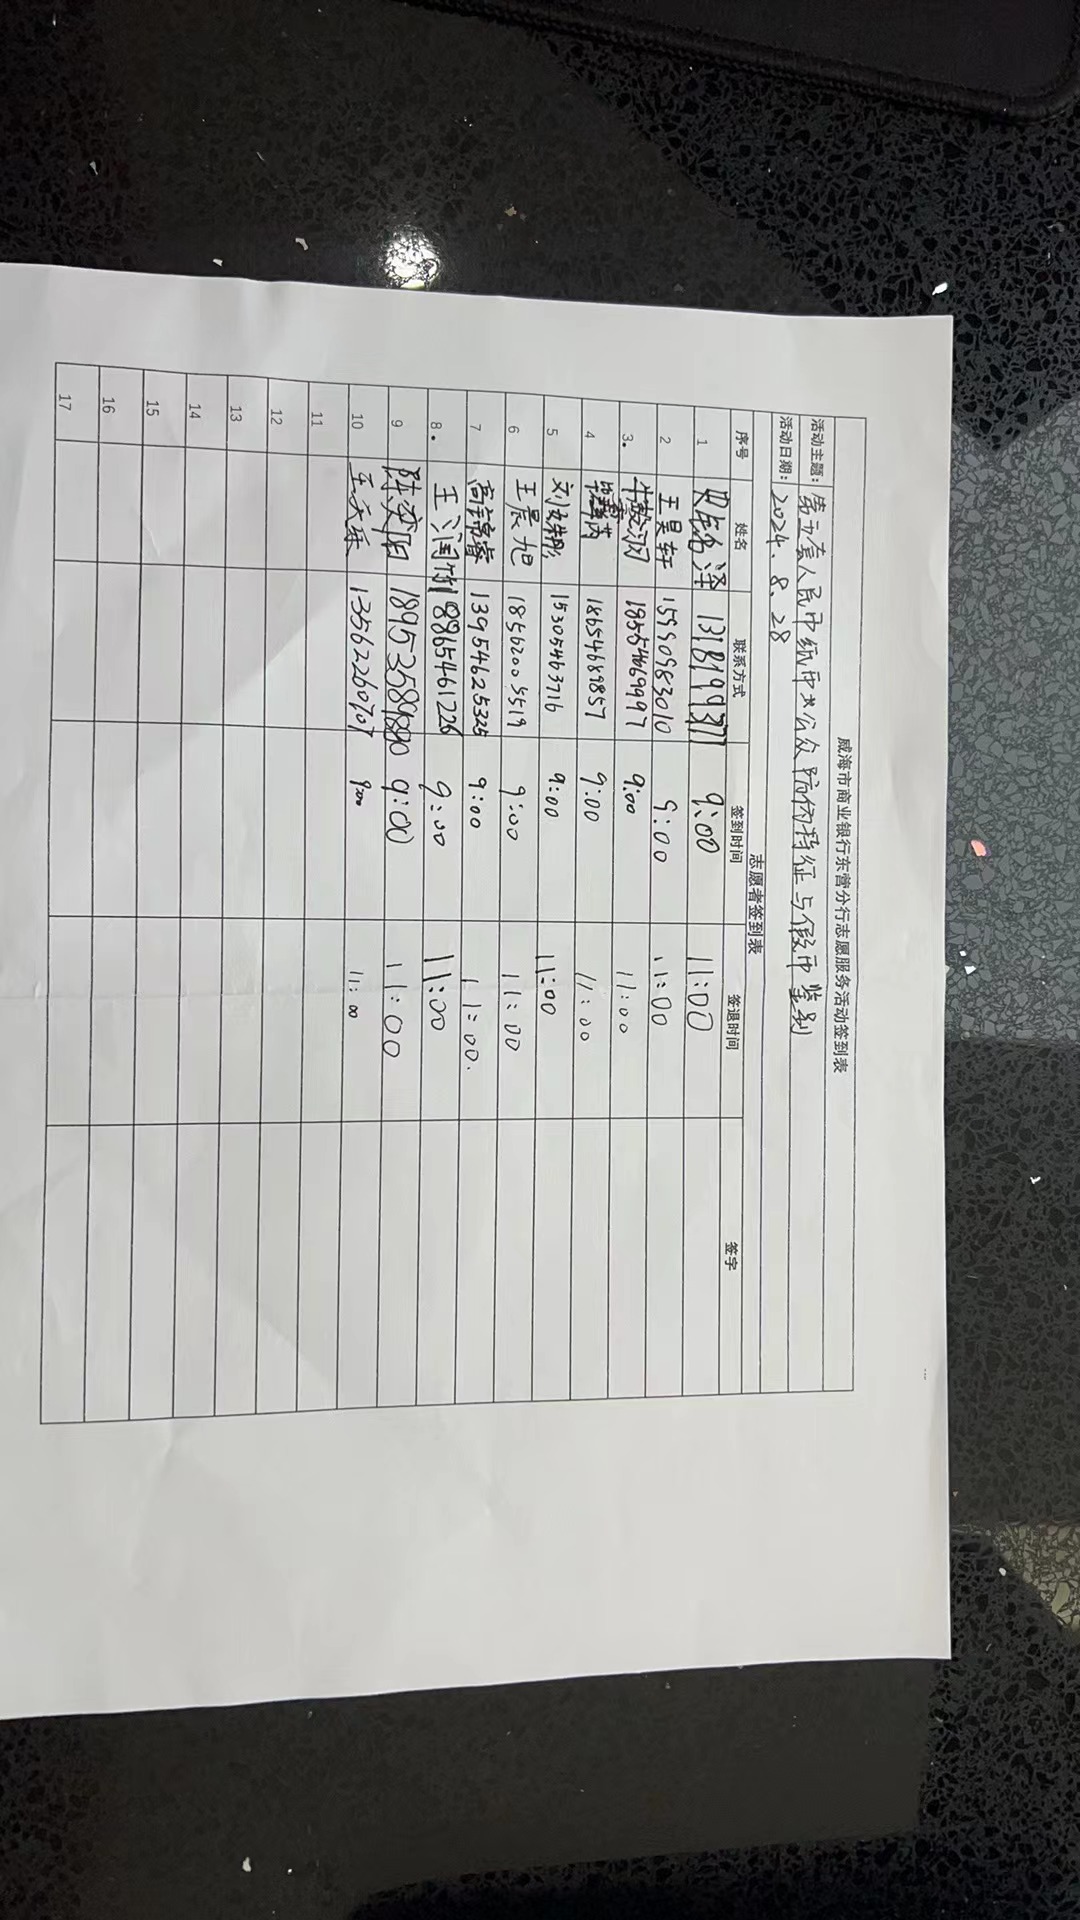 威海市商业银行东营分行志愿服务活动签到表
活动主题：第五套人民币纸币大公众防伪特征与假币鉴别
活动日期：2024.8.28
志愿者签到表
序号 姓名 联系方式 签到时间 签退时间 签字
1 9:00 11:00
2 王昊轩 15990983010 9:00 11:00
3. 18554669997 9:00 11:00
4 18654689857 9:00 11:00
5 15305463716 9:00 11:00
6 王晨旭 18562005519 9:00 11:00
7 高锦睿 13954625325 9:00 11:00.
8. 王润 18865461226 9:00 11:00
9 陈奕阳 9:00 11:00
10 王天乐 13562260707 9:00 11:00
11
12
13
14
15
16
17